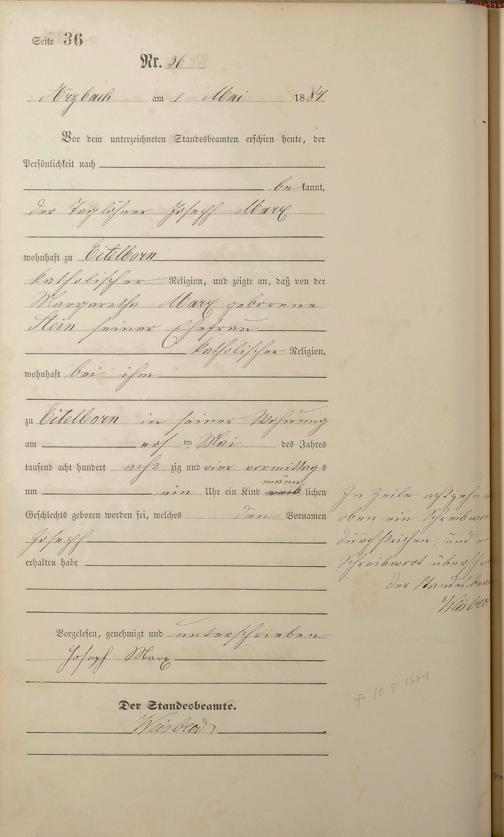 Seite 36
Nr. 36
Arzbach am 1 Mai 1884
Vor dem unterzeichneten Standesbeamten erschien heute, der
Persönlichkeit nach
be kannt,
der Taglöhner Joseph Marx
wohnhaft zu Eitelborn
katholischer Religion, und zeigte an, daß von der
Margaretha Marx geborene
Stein seiner Ehefrau
katholischer Religion,
wohnhaft bei ihm
zu Eitelborn in seiner Wohnung
am ersten Mai des Jahres
tausend acht hundert acht zig und vier vormittags
männ
um ein Uhr ein Kind weib lichen
Geschlechts geboren worden sei, welches den Vornamen
Joseph
erhalten habe
In Zeile achtzehn
oben ein
durchstrichen, und
Der
Vorgelesen, genehmigt und unterschrieben
Joseph Marx
Der Standesbeamte.
Weisbrod
† 10.5.1884